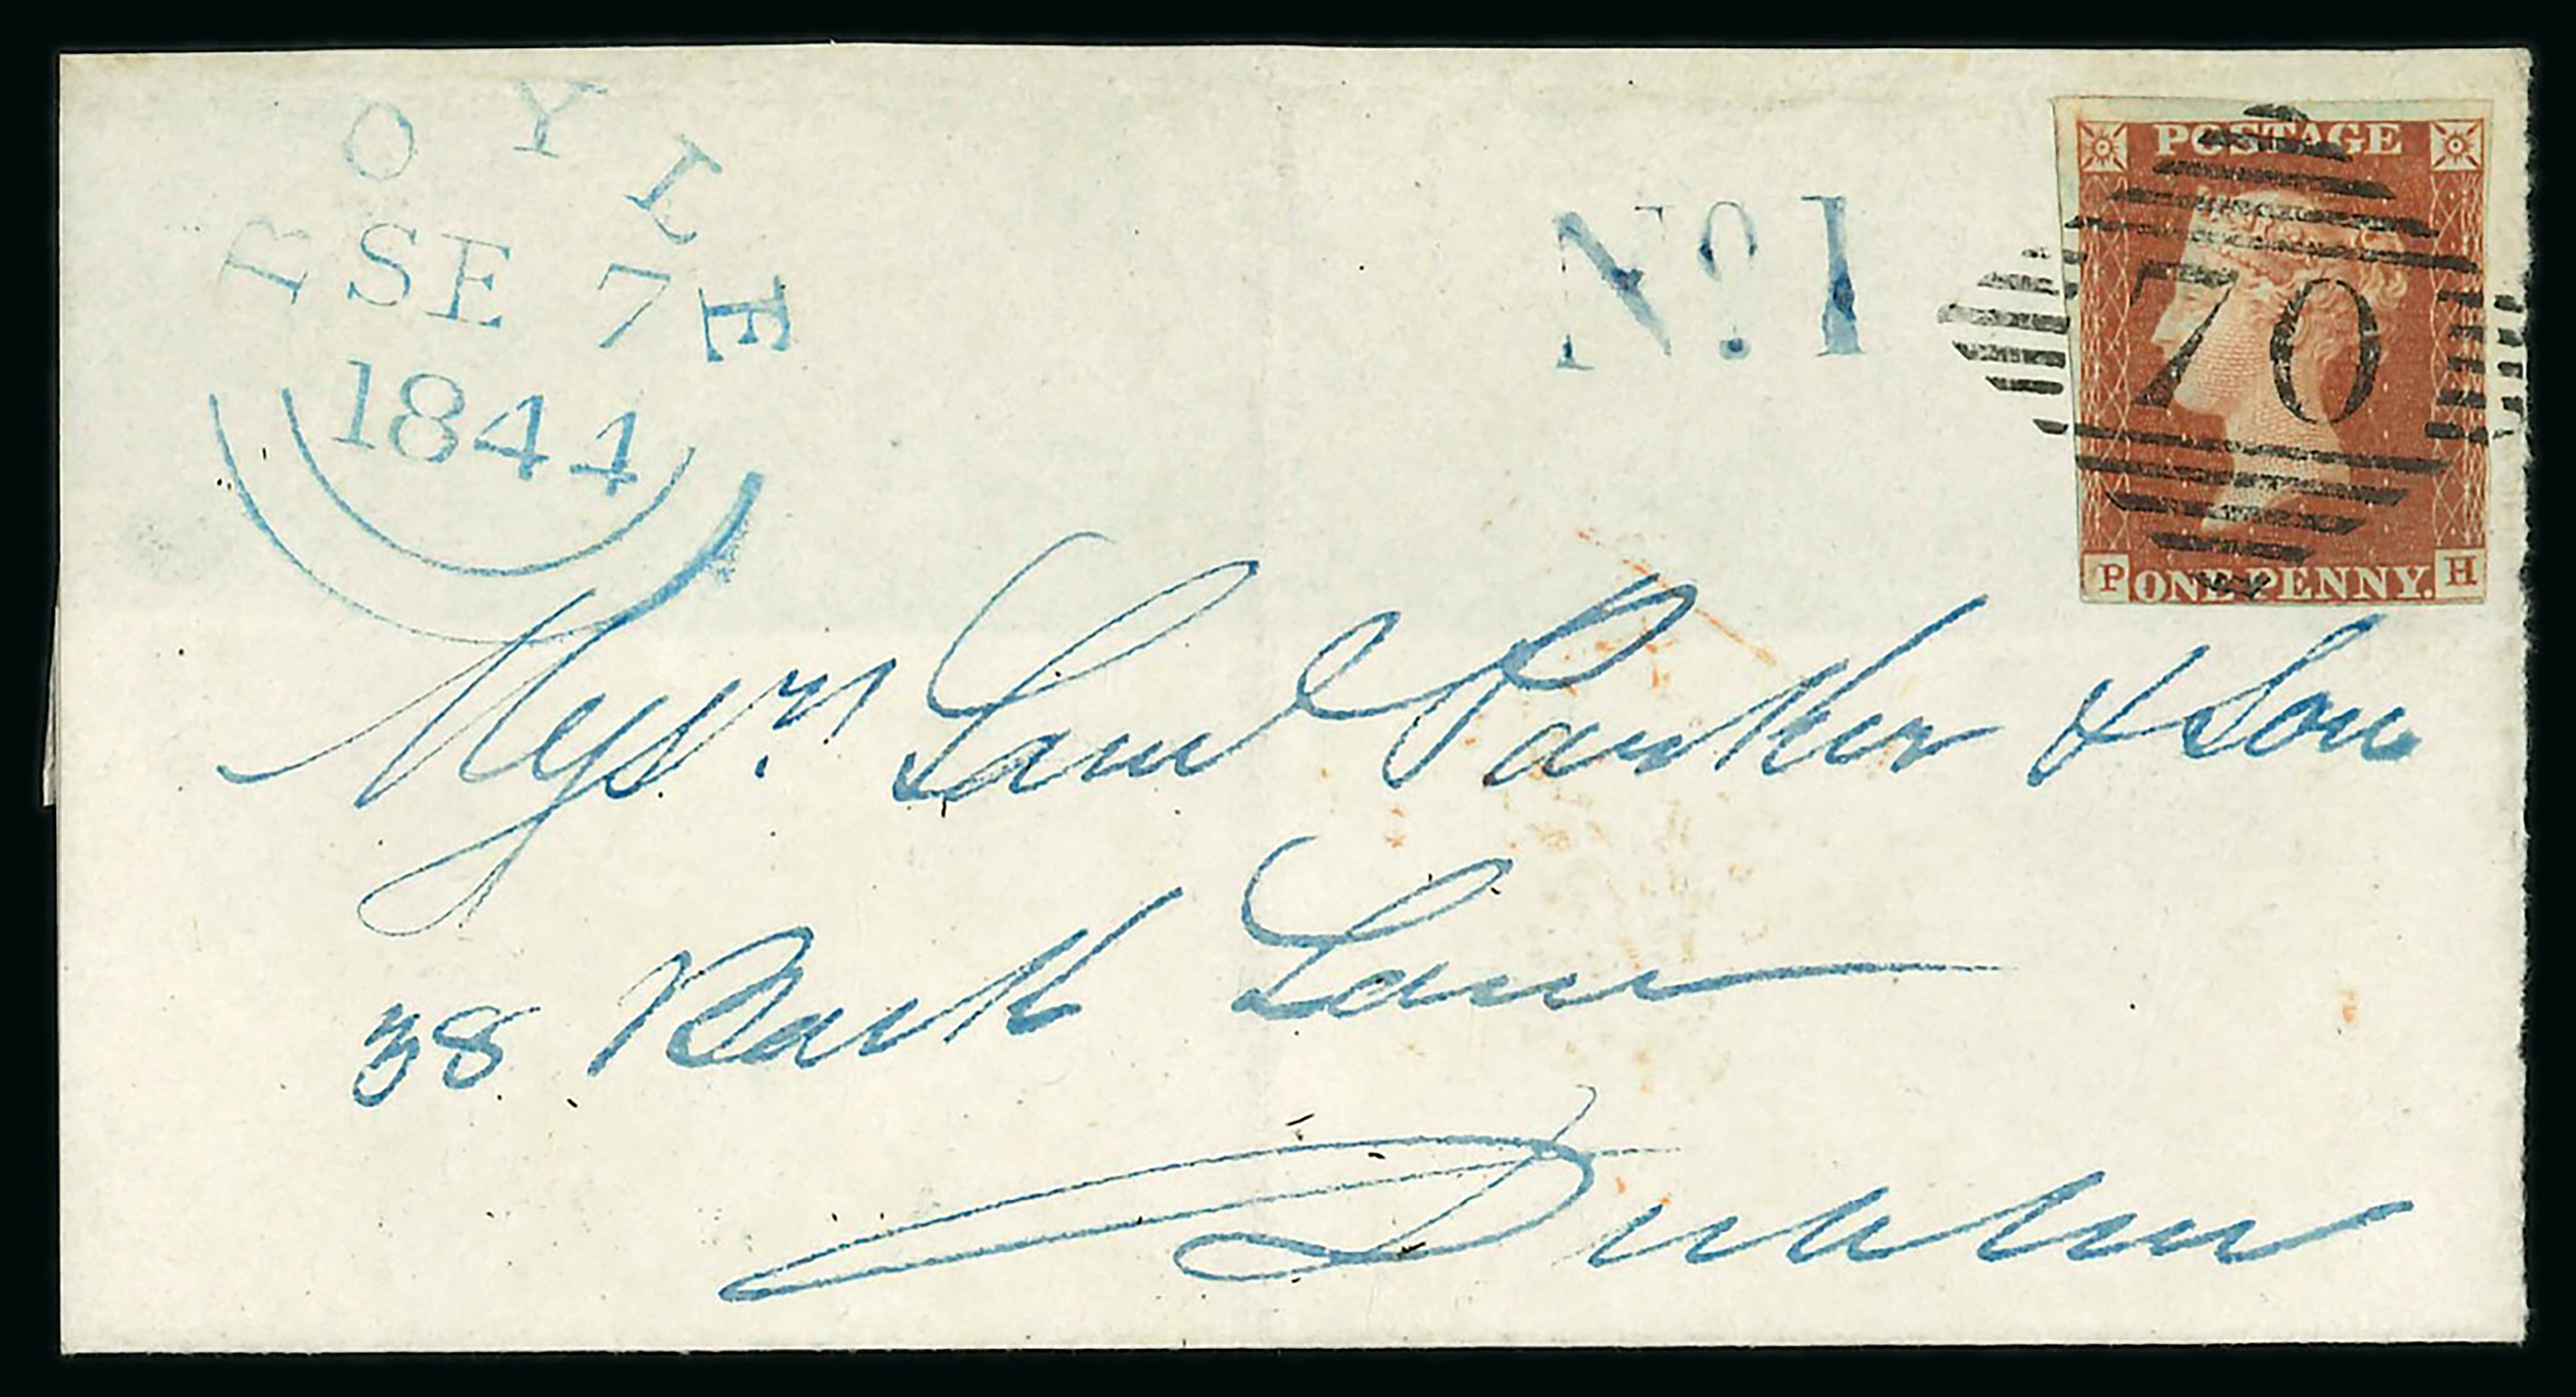 BOYLE
SE 7
1844
No. 1
POSTAGE
70
P ONE PENNY. H
Messrs. Saml Parker & Son
38 Back Lane
Dublin